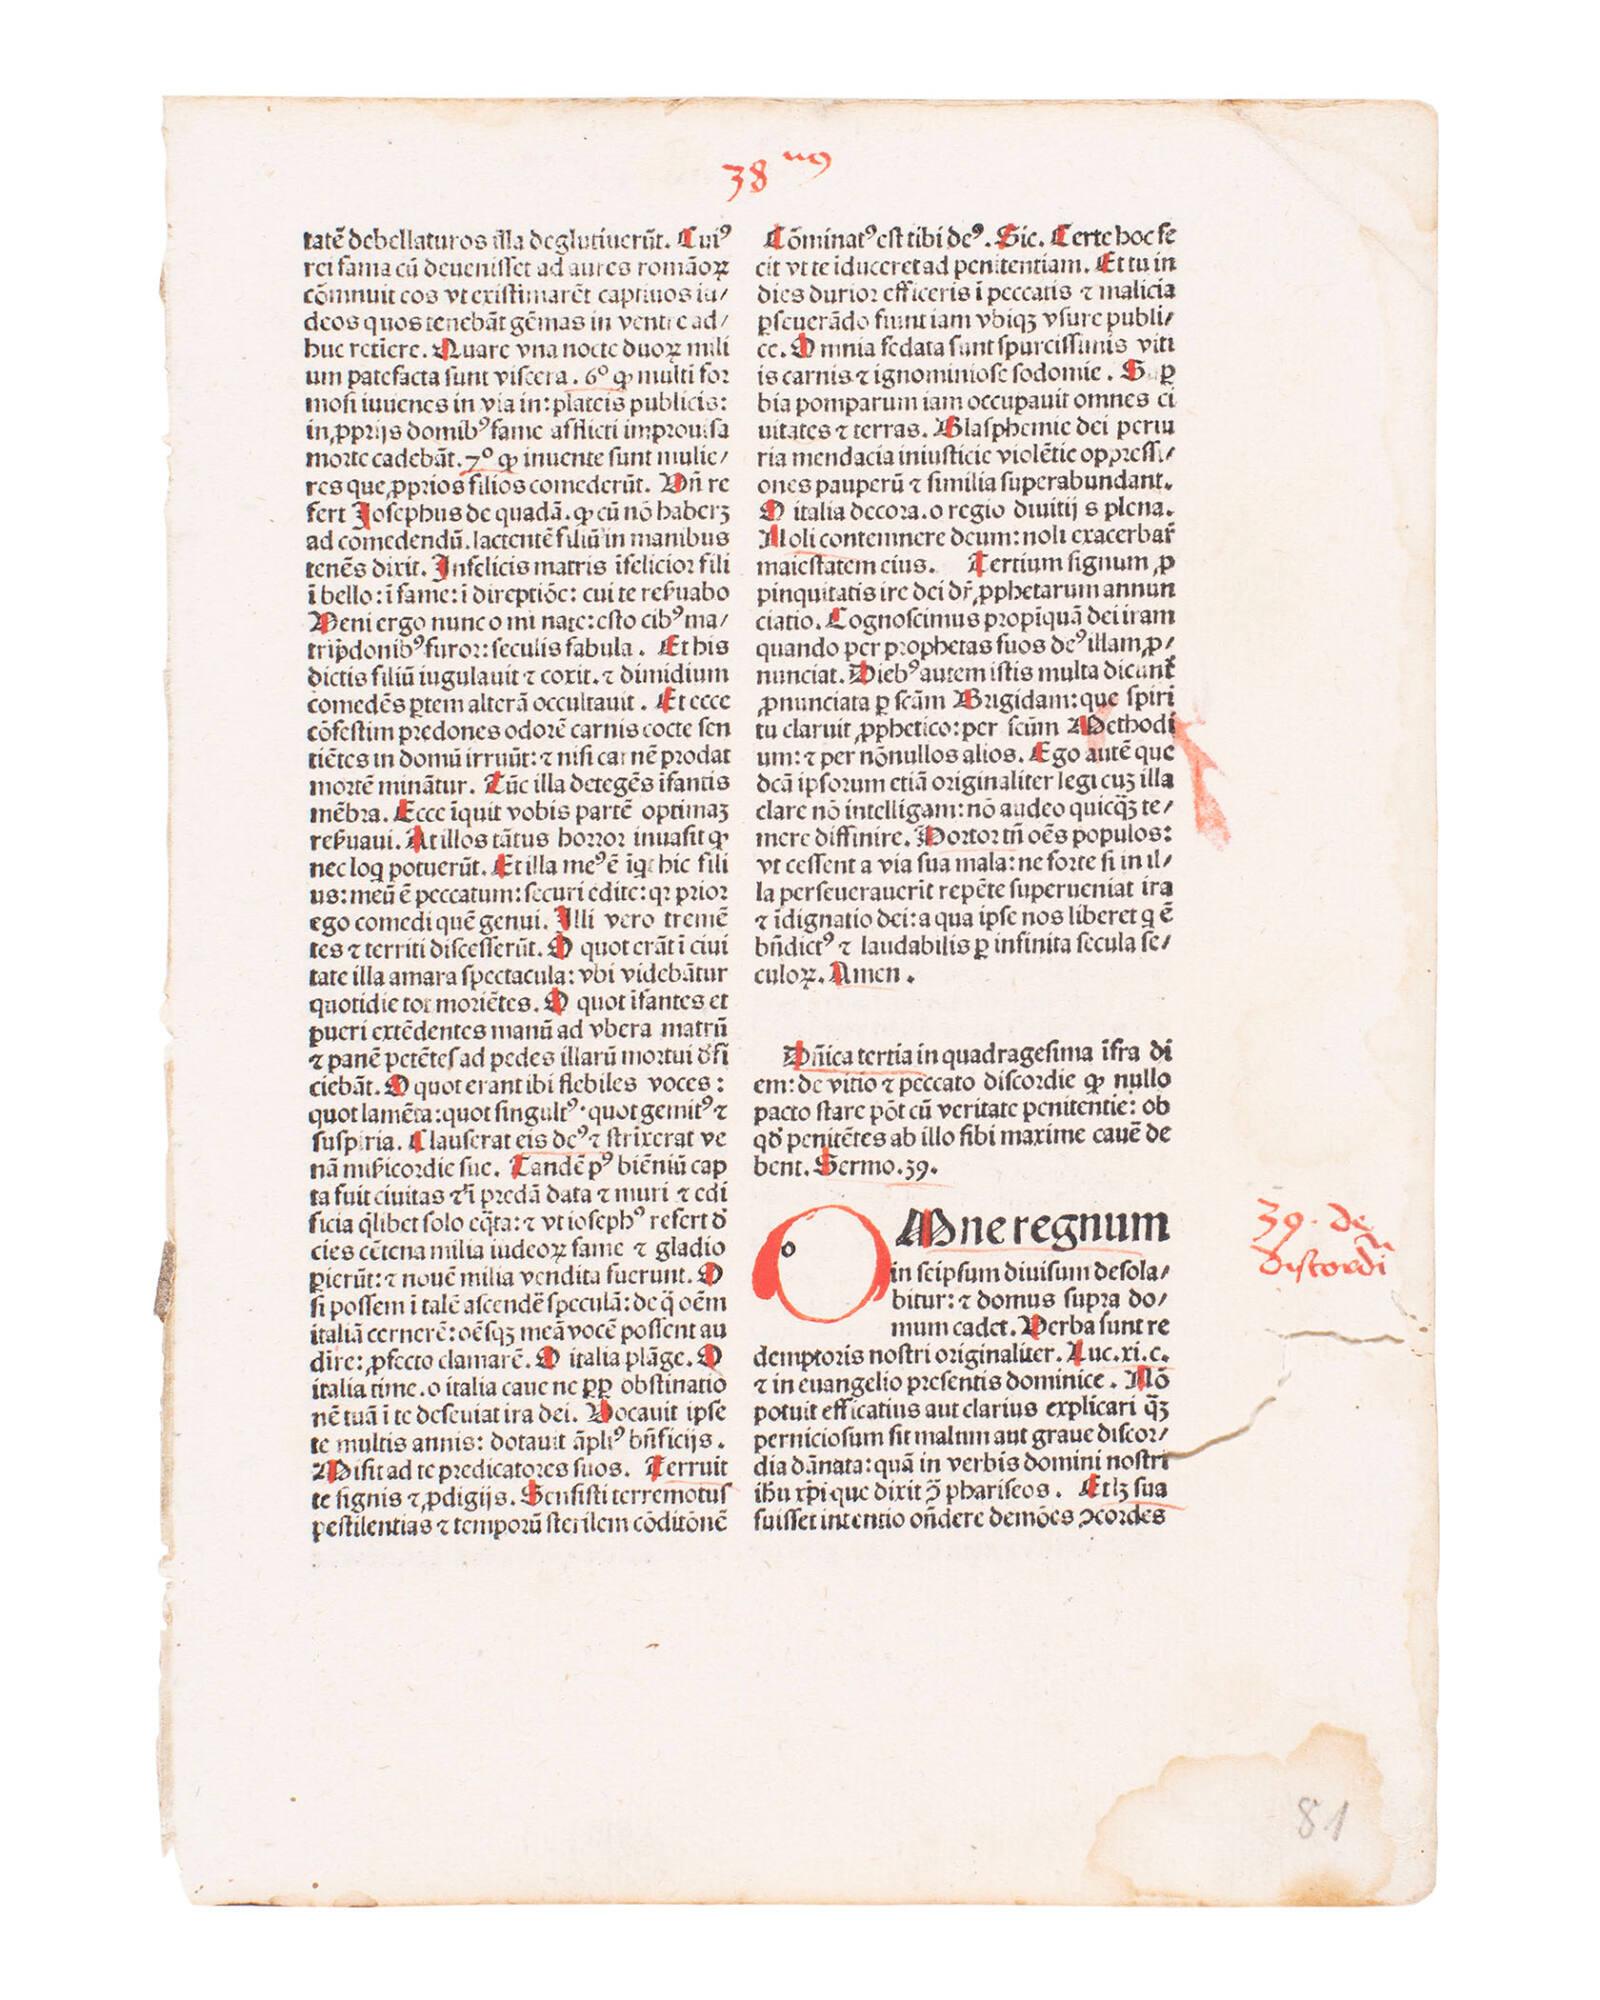 38 us
tatē debellaturos illa deglutiuerūt. Cuiꝰ
rei fama cū deuenisset ad aures romāoꝝ
cōmnuit eos vt existimarēt captiuos iu/
deos quos tenebāt gēmas in ventre ad/
huc retiere. Quare vna nocte duoꝝ mili
um patefacta sunt viscera. 6º ꝙ multi for
mosi iuuenes in via in: plateis publicis:
in ꝓprijs domibꝰ fame afflicti improuisa
morte cadebāt. 7º ꝙ inuente sunt mulie/
res que ꝓprios filios comederūt. Vn̄ re
fert Josephus de quadā. ꝙ cū nō haberꝫ
ad comedendū. lactentē filiū in manibus
tenēs dixit. Infelicis matris īfelicior fili
ī bello: ī fame: ī direptiōe: cui te reẜuabo
Veni ergo nunc o mi nate: esto cibꝰ ma/
tri p̄donibꝰ furor: seculis fabula. Et his
dictis filiū iugulauit ⁊ coxit. ⁊ dimidium
comedēs ꝑtem alterā occultauit. Et ecce
cōfestim predones odorē carnis cocte sen
tiētes in domū irruūt: ⁊ nisi carnē prodat
mortē minātur. Tūc illa detegēs īfantis
mēbra. Ecce īquit vobis partē optimaꝫ
reẜuaui. At illos tātus horror inuasit ꝙ
nec loq potuerūt. Et illa meꝰ ē īqt hic fili
us: meū ē peccatum: securi edite: qꝛ prior
ego comedi quē genui. Illi vero tremē
tes ⁊ territi discesserūt. O quot erāt ī ciui
tate illa amara spectacula: vbi videbātur
quotidie tot moriētes. O quot īfantes et
pueri extēdentes manū ad vbera matrū
⁊ panē petētes ad pedes illarū mortui d̄fi
ciebāt. O quot erant ibi flebiles voces:
quot lamēta: quot singultꝰ. quot gemitꝰ ⁊
suspiria. Clauserat eis deꝰ ⁊ strixerat ve
nā miẜicordie sue. Tandē pꝰ biēniū cap
ta fuit ciuitas ⁊ ī predā data ⁊ muri ⁊ edi
ficia q̄libet solo eq̄ta: ⁊ vt iosephꝰ refert d̄
cies cētena milia iudeoꝝ fame ⁊ gladio
ꝑierūt: ⁊ nouē milia vendita fuerunt. O
si possem ī talē ascendē speculā: de q̄ oēm
italiā cernerē: oēsqꝫ meā vocē possent au
dire: ꝓfecto clamarē. O italia plāge. O
italia time. o italia caue ne ꝓp obstinatio
nē tuā ī te deseuiat ira dei. Vocauit ipse
te multis annis: dotauit āpliꝰ bn̄ficijs.
Misit ad te predicatores suos. Terruit
te signis ⁊ ꝓdigijs. Sensisti terremotus
pestilentias ⁊ temporū sterilem cōditōnē
Cōminatꝰ est tibi deꝰ. Sic. Certe hoc fe
cit vt te īduceret ad penitentiam. Et tu in
dies durior efficeris ī peccatis ⁊ malicia
ꝑseuerādo fiunt iam vbiqꝫ vsure publi/
ce. Omnia fedata sunt spurcissimis viti
is carnis ⁊ ignominiose sodomie. Suꝑ
bia pomparum iam occupauit omnes ci
uitates ⁊ terras. Blasphemie dei periu
ria mendacia iniusticie violētie oppressi/
ones pauperū ⁊ similia superabundant.
O italia decora. o regio diuitijs plena.
Noli contemnere deum: noli exacerbar̄
maiestatem eius. Tertium signum ꝓ
pinquitatis ire dei dr̄ ꝓphetarum annun
ciatio. Cognoscimus propīquā dei iram
quando per prophetas suos deꝰ illam ꝓ/
nunciat. Diebꝰ autem istis multa dicunt̄
ꝓnunciata ꝑ scām Brigidam: que spiri
tu claruit ꝓphetico: per scūm Methodi
um: ⁊ per nōnullos alios. Ego autē que
dcā ipsorum etiā originaliter legi cuꝫ illa
clare nō intelligam: nō audeo quicq̄ꝫ te/
mere diffinire. Hortor tn̄ oēs populos:
vt cessent a via sua mala: ne forte si in il/
la perseuerauerit repēte superueniat ira
⁊ īdignatio dei: a qua ipse nos liberet q ē
bn̄dictꝰ ⁊ laudabilis ꝑ infinita secula se/
culoꝝ. Amen.
Dn̄ica tertia in quadragesima īfra di
em: de vitio ⁊ peccato discordie ꝙ nullo
pacto stare pōt cū veritate penitentie: ob
qd̄ penitētes ab illo sibi maxime cauē de
bent. Sermo. 39.
OMne regnum
in seipsum diuisum desola/
bitur: ⁊ domus supra do/
mum cadet. Verba sunt re
demptoris nostri originaliter. Luc. xi. c.
⁊ in euangelio presentis dominice. Nō
potuit efficatius aut clarius explicari q̄ꝫ
perniciosum sit malum aut graue discor/
dia dānata: quā in verbis domini nostri
ihū xp̄i que dixit ↄ̄ phariseos. Et lꝫ sua
fuisset intentio on̄dere demōes ↄcordes
39. de
discordi
81